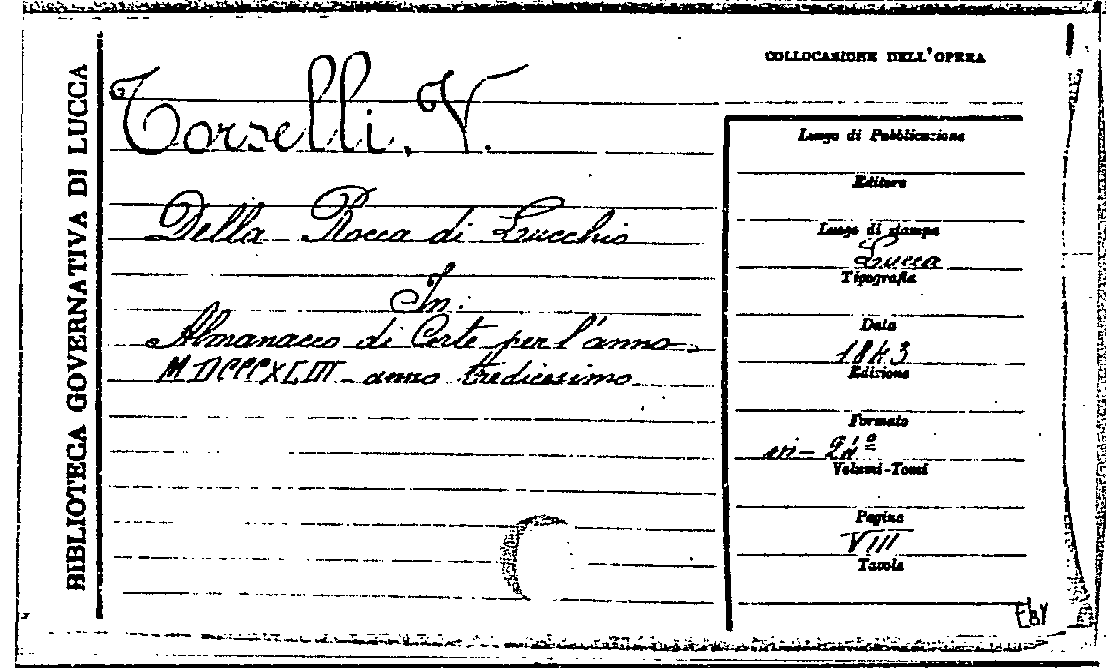 BIBLIOTECA GOVERNATIVA DI LUCCA
Torselli, V.
Della Rocca di Lucchio
In:
Almanacco di Corte per l'anno
MDCCCXLIII - anno tredicesimo.
COLLOCAZIONE DELL'OPERA
Luogo di Pubblicazione
Editore
Luogo di stampa
Lucca
Tipografia
Data
1843
Edizione
Formato
in - 24º
Volumi-Tomi
Pagine
VIII
Tavole